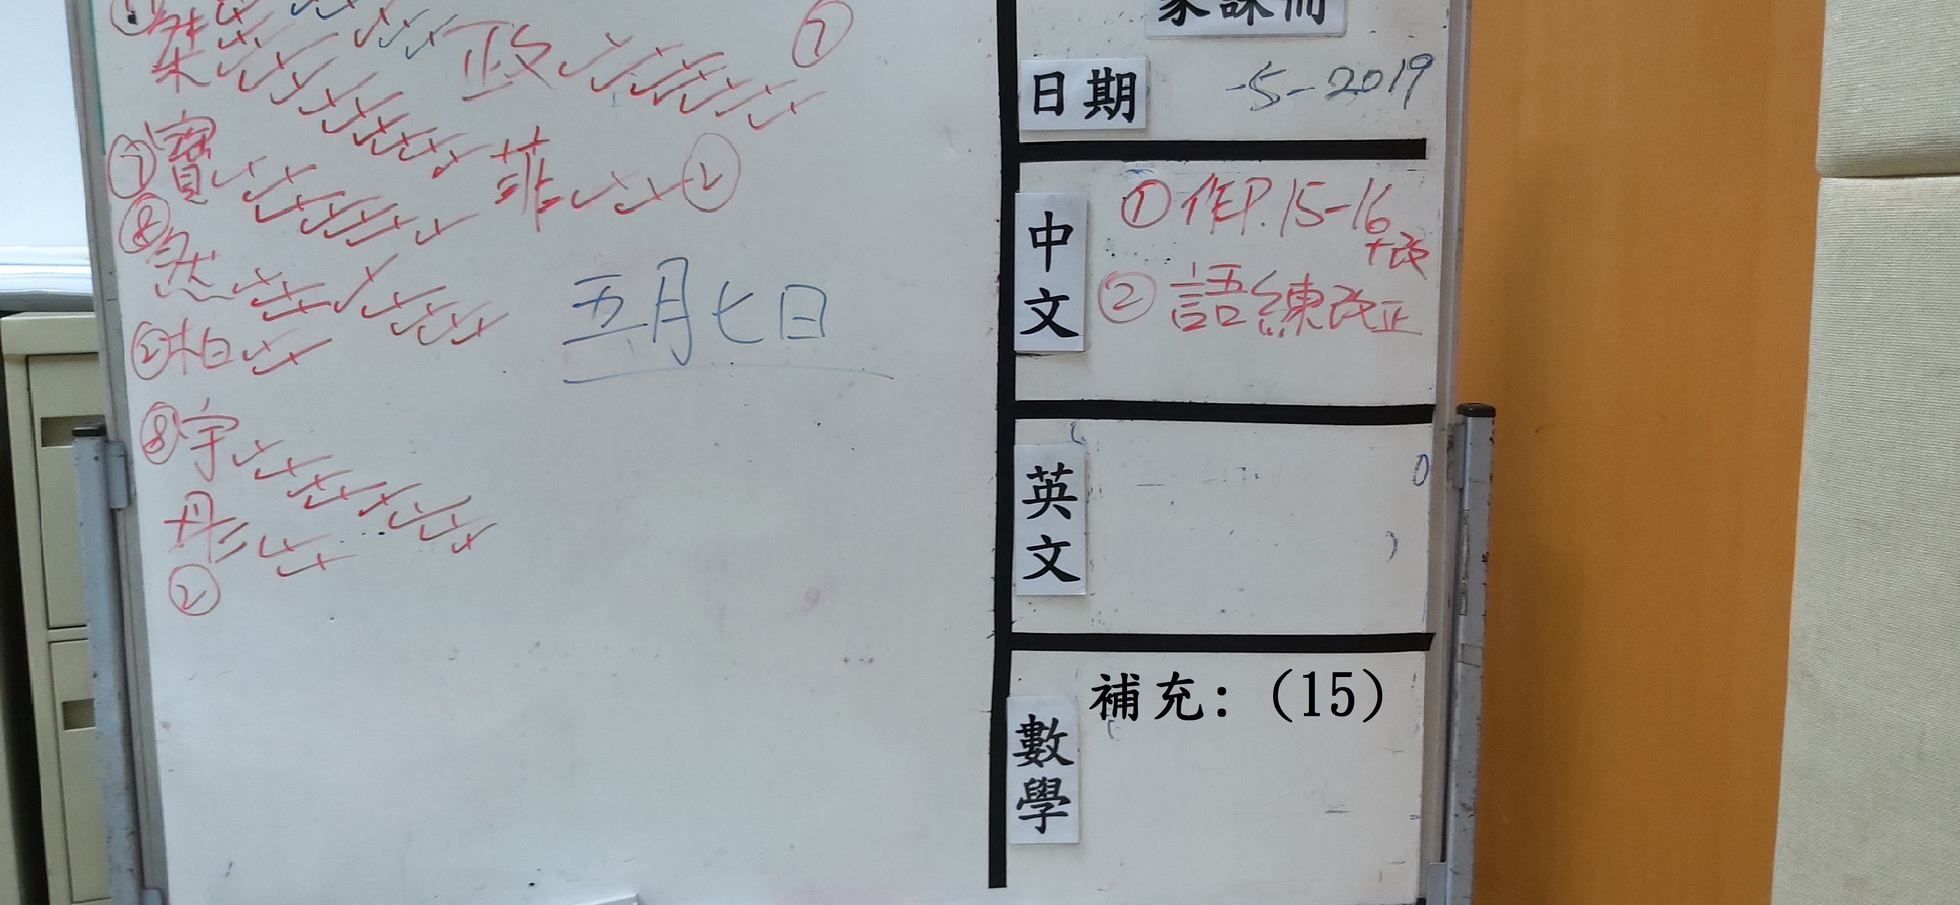 家課冊
日期 -5-2019
中文
①作P.15-16
+改
②語練改正
英文
數學
補充:(15)
政 ⑦
⑦寶
菲 ②
⑧然
②柏
⑧宇
彤
②
五月七日